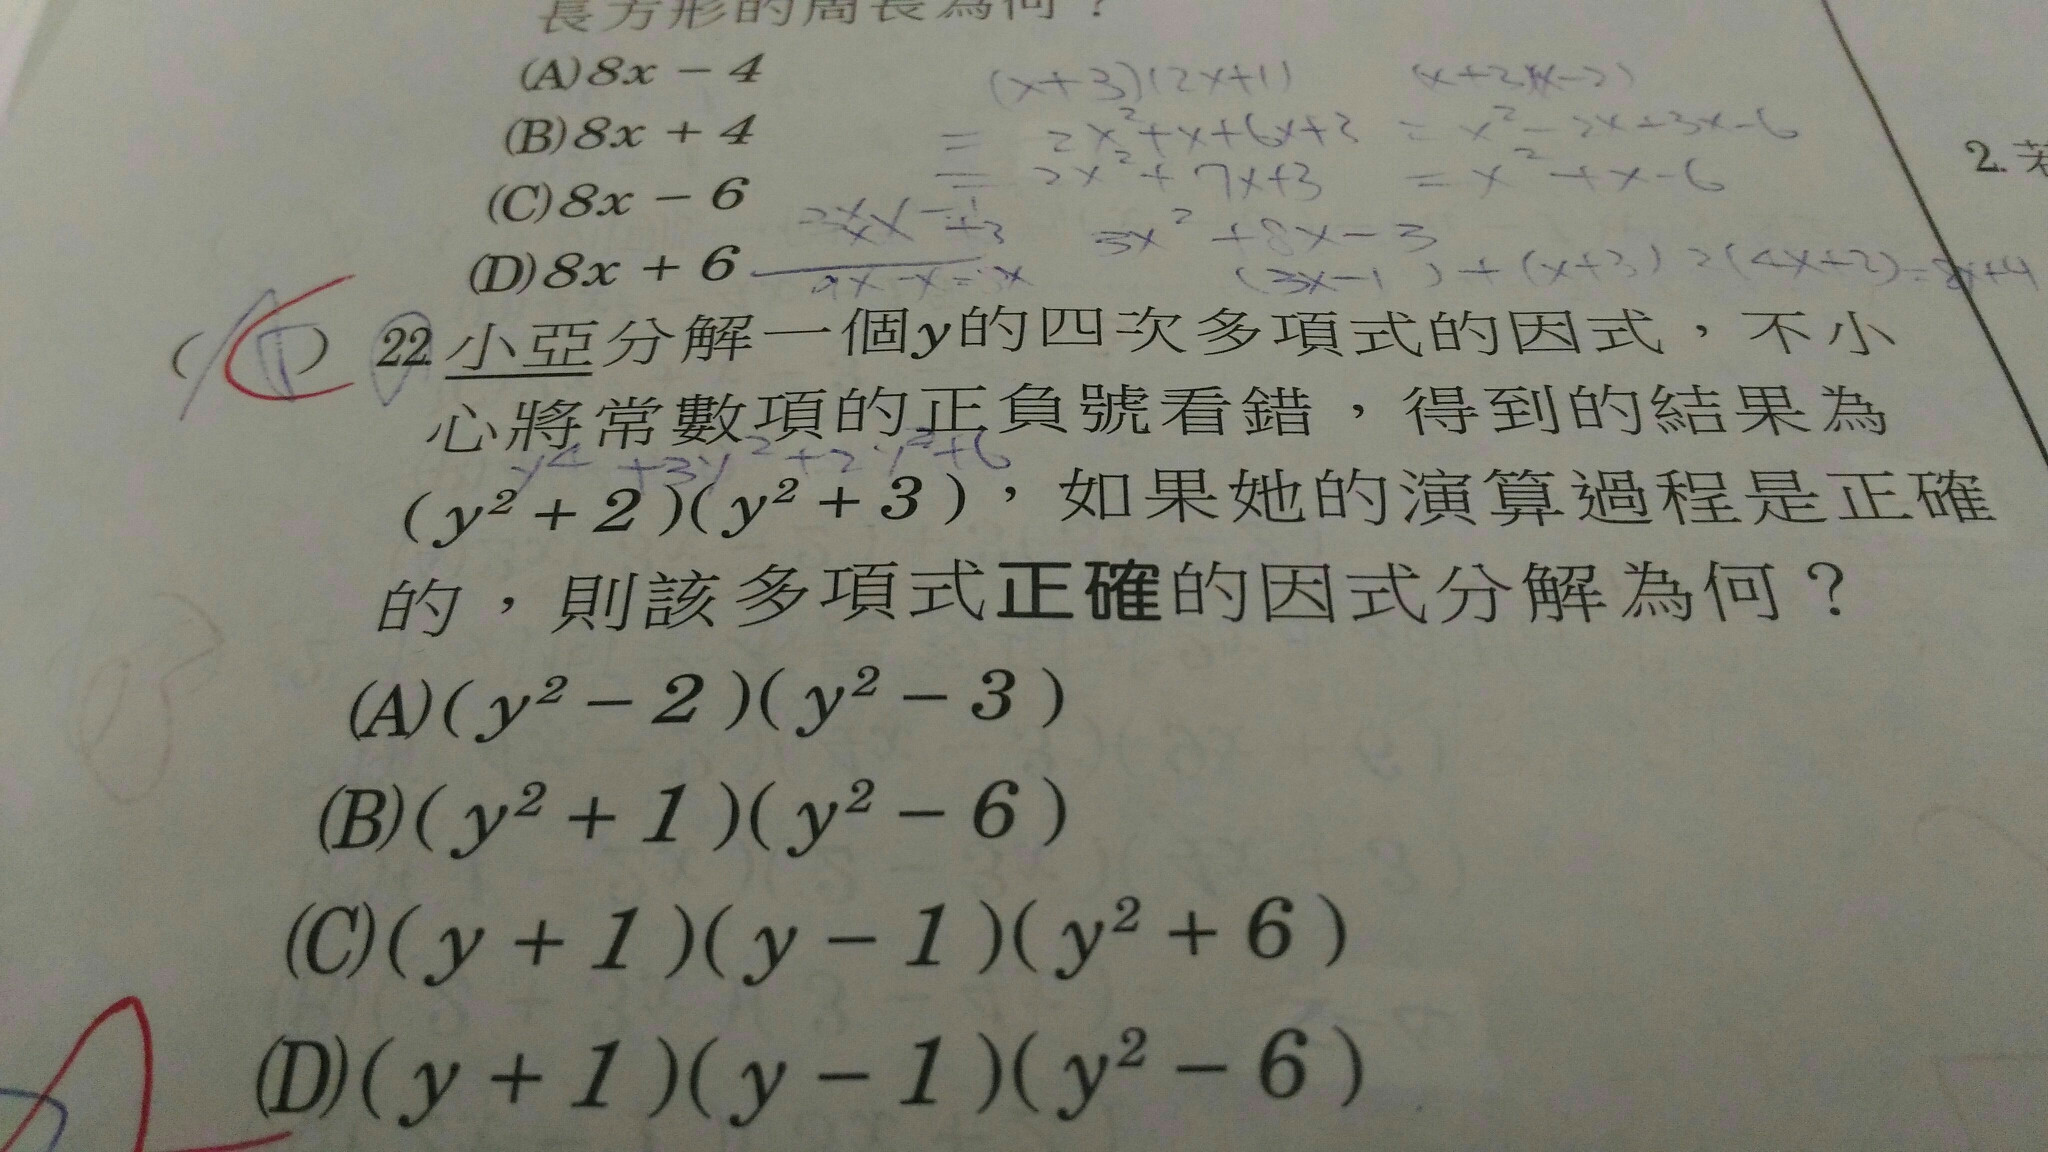 長方形的周長為何？
(A)8x − 4
(B)8x + 4
(C)8x − 6
(D)8x + 6
(x+3)(2x+1)
= 2x²+x+6x+3
= 2x²+7x+3
(x+3)(x-2)
= x²-2x+3x-6
= x²+x-6
3x²+8x-3
(3x-1)+(x+3) 2(4x+2)=8x+4
2.若
( ) 22 小亞分解一個y的四次多項式的因式，不小
心將常數項的正負號看錯，得到的結果為
y⁴+3y²+2y²+6
(y²+2)(y²+3)，如果她的演算過程是正確
的，則該多項式正確的因式分解為何？
(A)(y²−2)(y²−3)
(B)(y²+1)(y²−6)
(C)(y+1)(y−1)(y²+6)
(D)(y+1)(y−1)(y²−6)